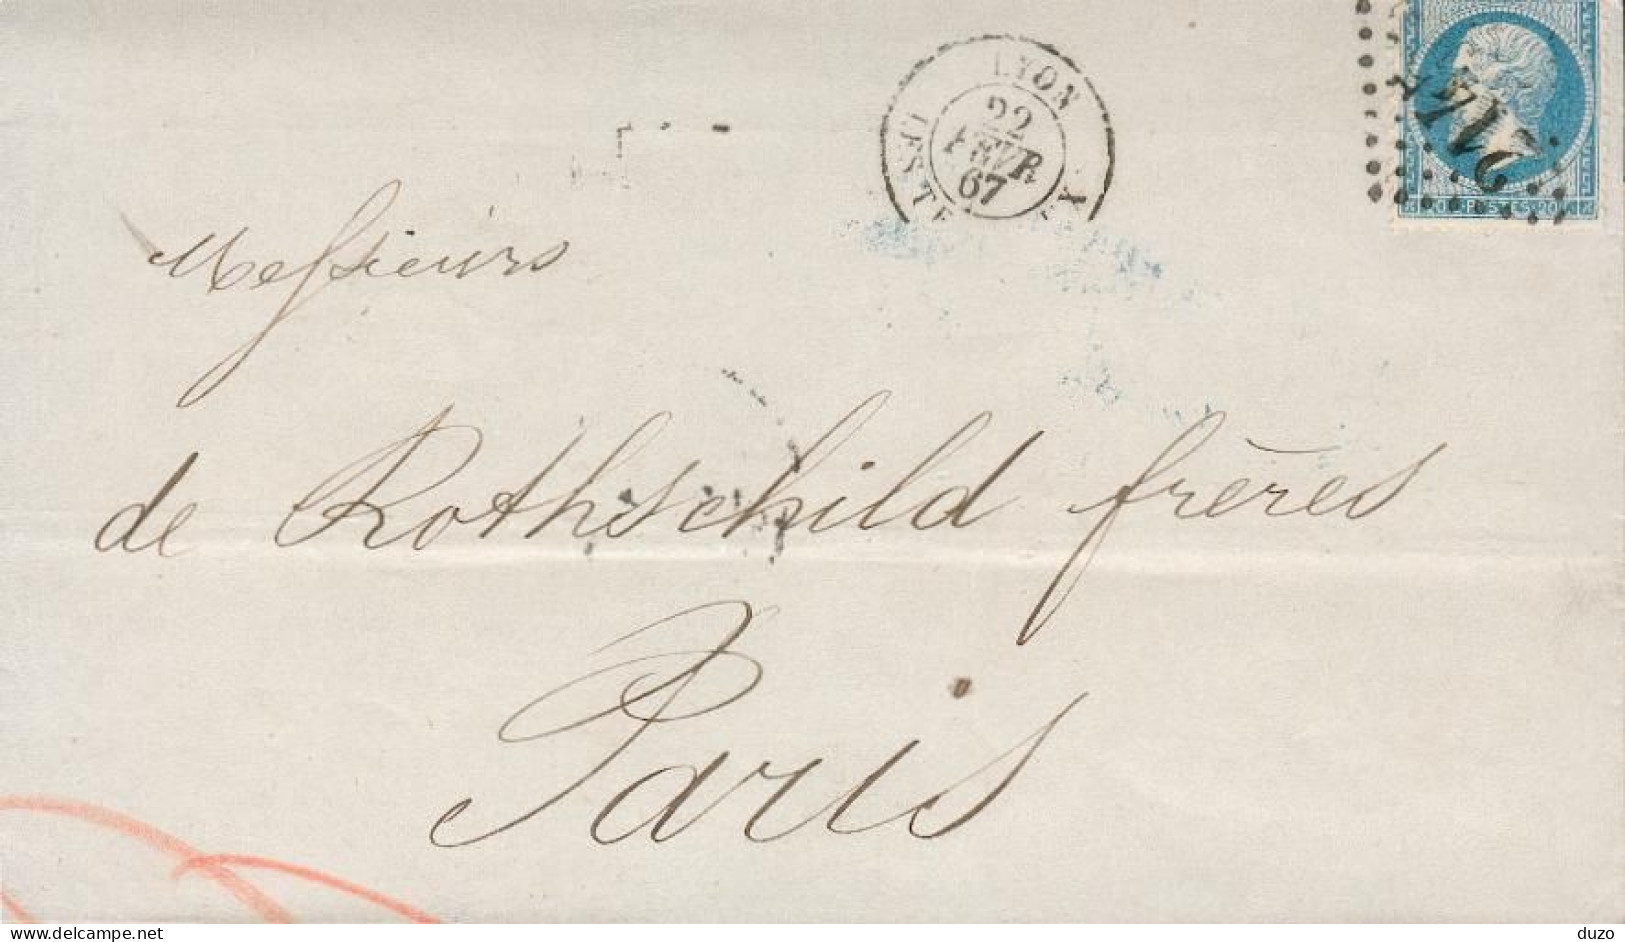 LYON
22
FEVR
67
LES TE
20 POSTES 20
Messieurs
de Rothschild frères
Paris
www.delcampe.net
duzo